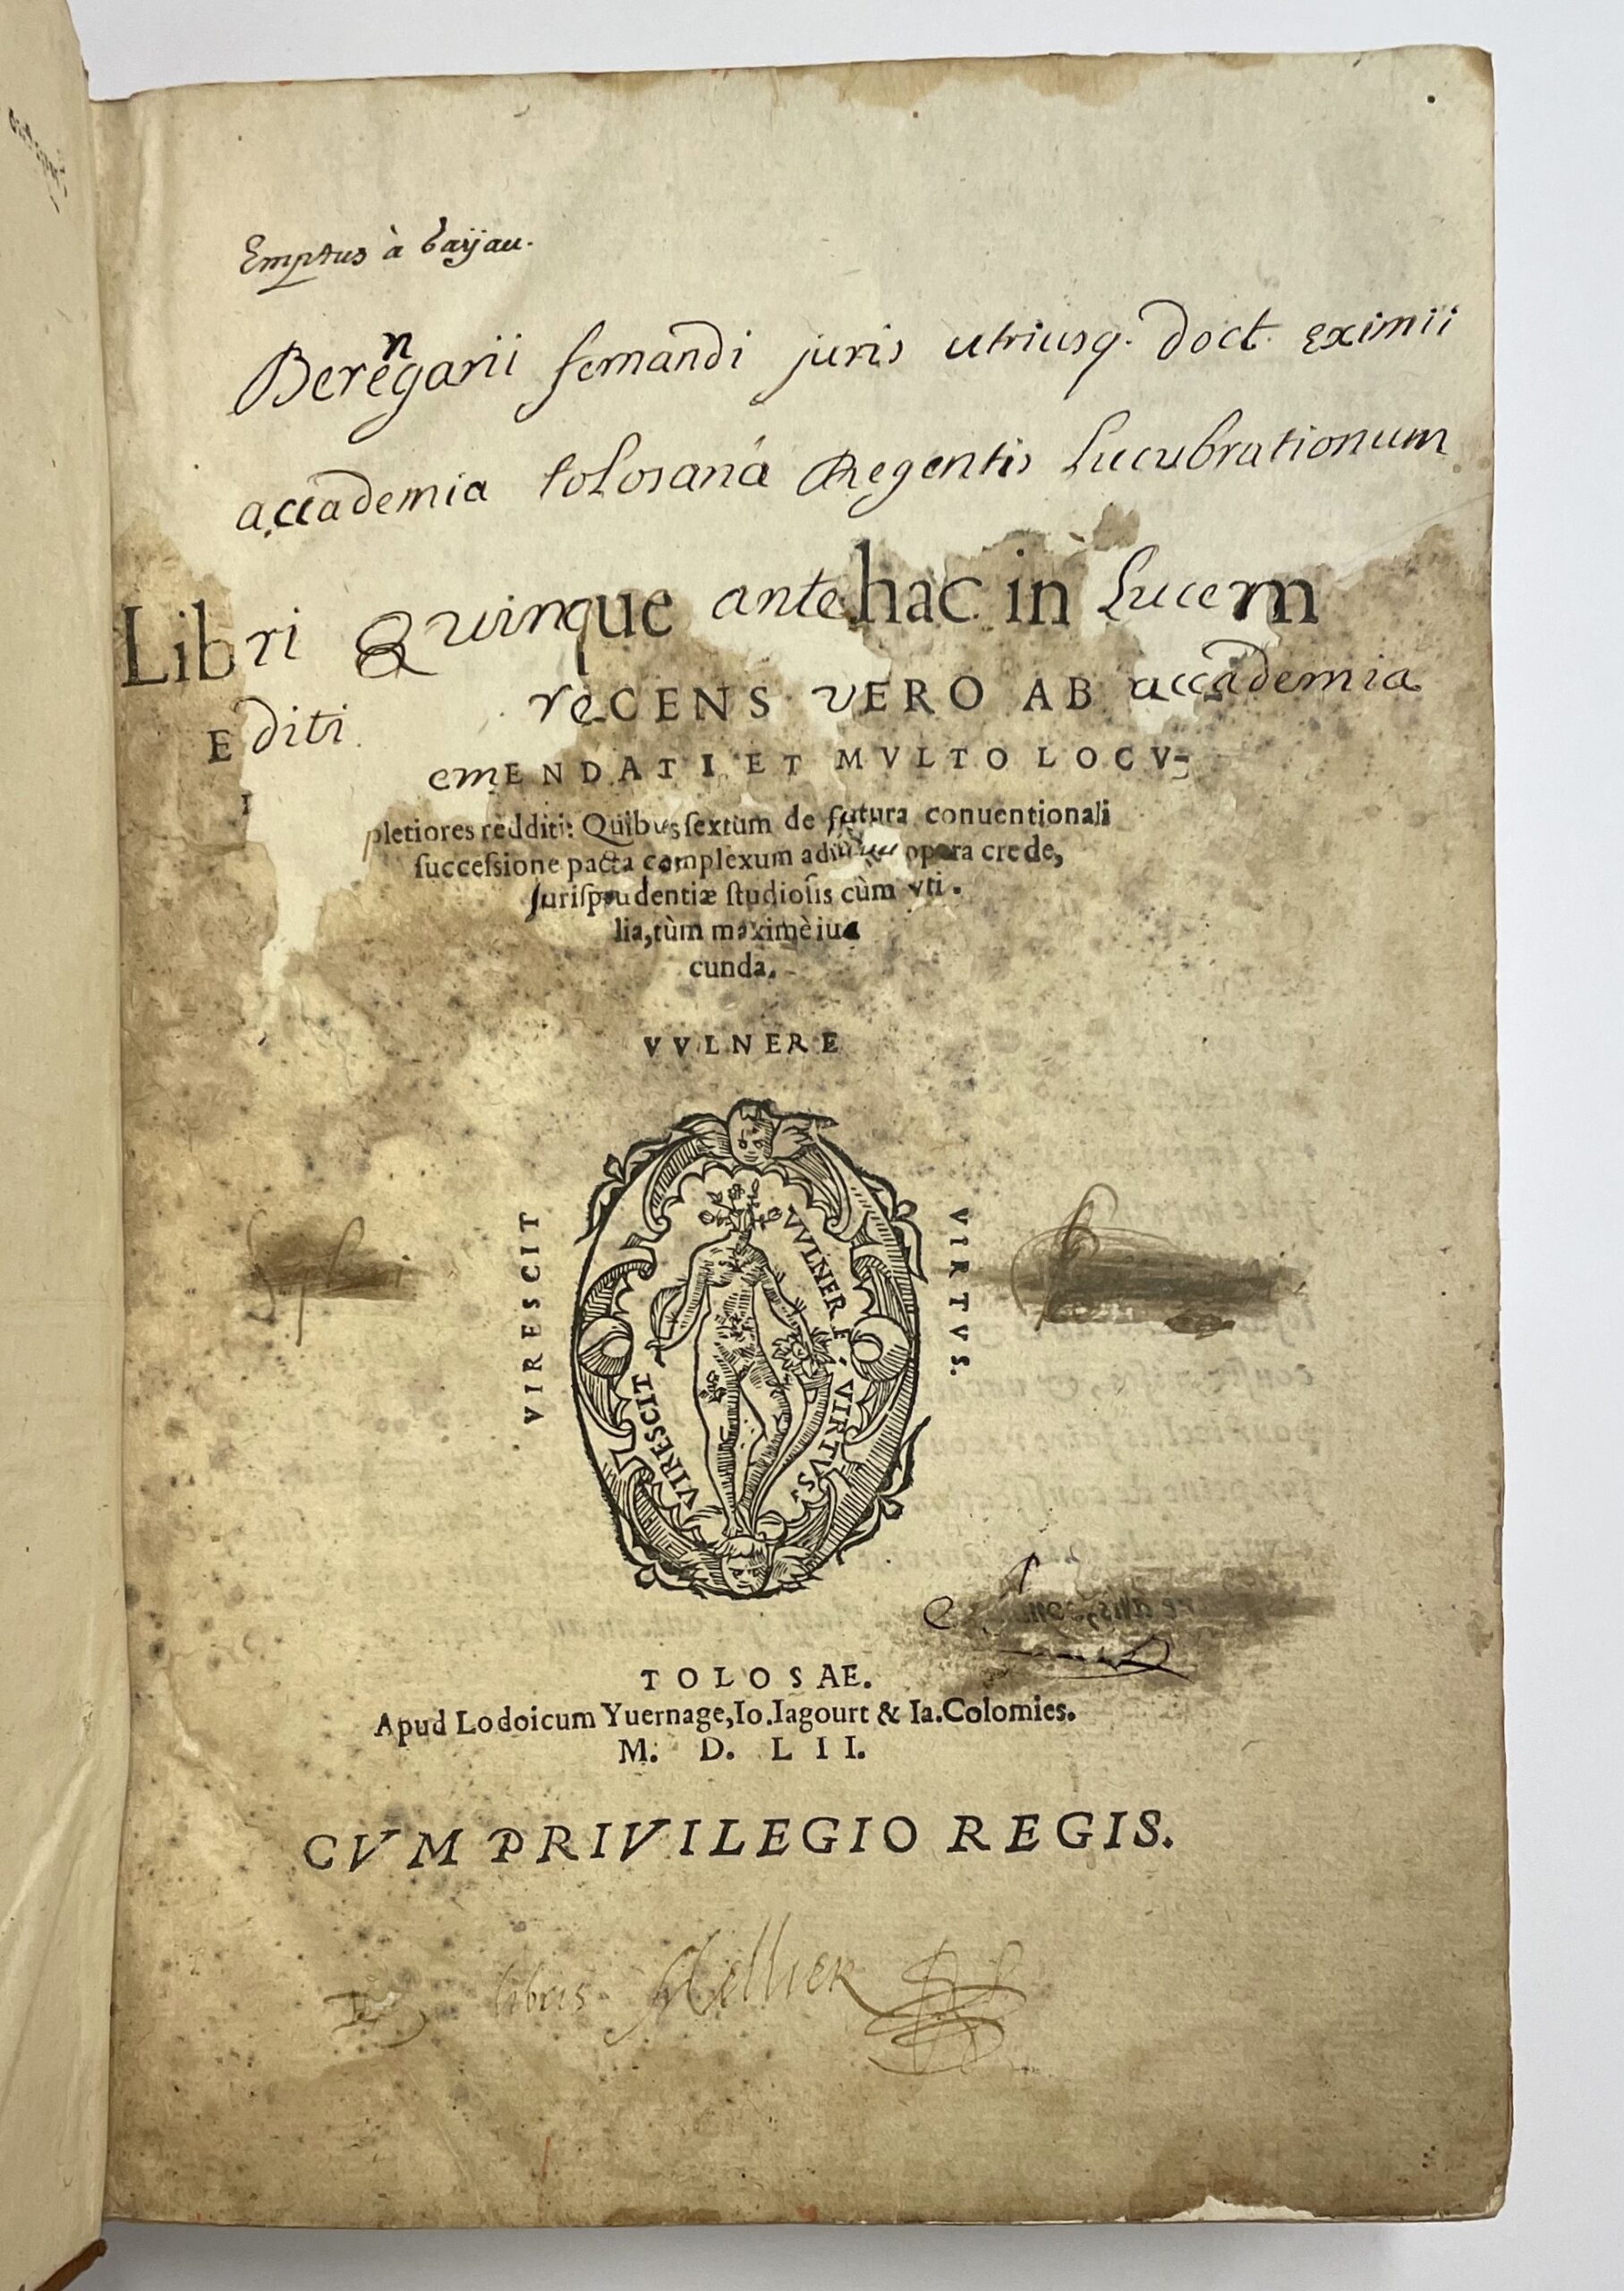 Emptus à
Berengarii fernandi juris utriusq. doct. eximii
accademia tolosanâ Regentis Lucubrationum
Libri Quinque antehac in Lucem
Editi recENS vERO AB accademia
emENDATI ET MVLTO LOCV-
pletiores redditi: Quibus sextum de futura conuentionali
successione pacta complexum opera crede,
Jurisprudentiæ studiosis cùm vti-
lia, tùm maximè iu
cunda.
VVLNERE
VIRESCIT
VIRTVS.
VIRESCIT VVLNERE VIRTVS
TOLOSAE.
Apud Lodoicum Yuernage, Io. Iagourt & Ia. Colomies.
M. D. LII.
CVM PRIVILEGIO REGIS.
libris